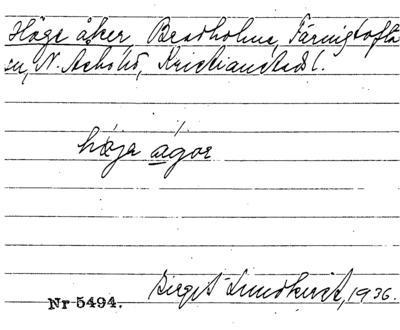 Höge åker, Bradholma, Färingtofta
sn, N. Åsbo hd, Kristianstads l.
høja ágor
Nr 5494. Birgit Lundkvist, 1936.